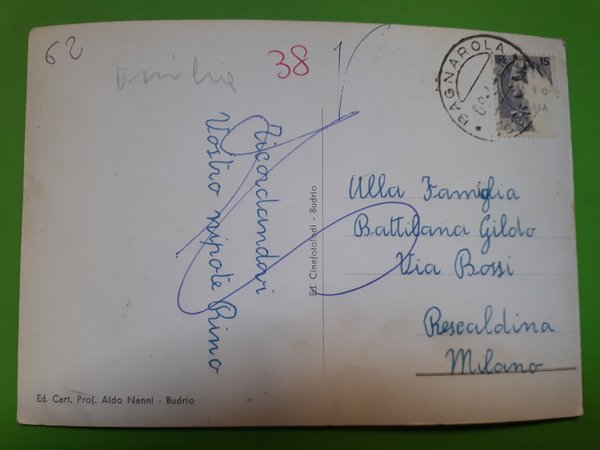 62
38
BAGNAROLA
15
Ricordandovi
Vostro nipote Rino
Ed. Cinefotoladi - Budrio
Alla Famiglia
Battilana Gildo
Via Bossi
Rescaldina
Milano
Ed. Cart. Prof. Aldo Nanni - Budrio